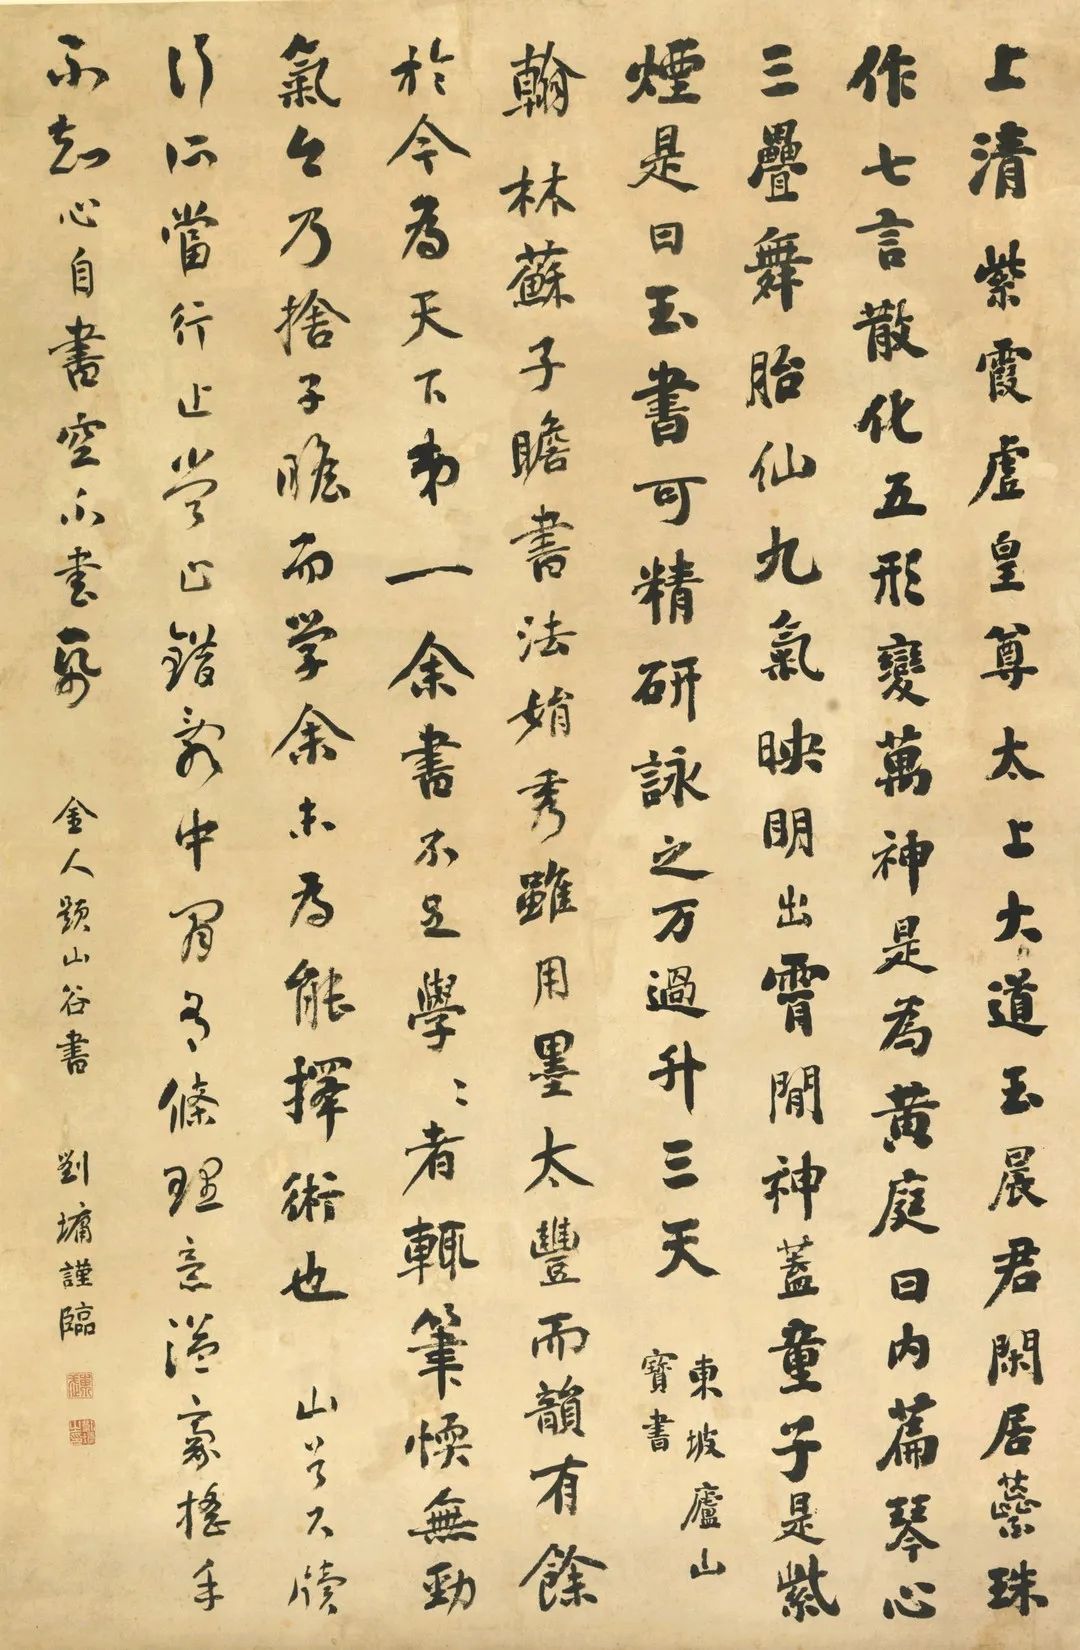 上清紫霞虛皇尊太上大道玉晨君閑居蘂珠
作七言散化五形變萬神是為黃庭曰內篇琴心
三疊舞胎仙九氣映明出霄間神蓋童子是紫
煙是曰玉書可精研詠之万過升三天
東坡廬山
寶書
翰林蘇子瞻書法娟秀雖用墨太豐而韻有餘
於今為天下第一余書不足學〻者輒筆愞無勁
氣今乃捨子瞻而學余未為能擇術也 山谷尺牘
行所當行止當止錯亂中間有條理意溢毫搖手
不知心自書空不書帋 金人題山谷書 劉墉謹臨